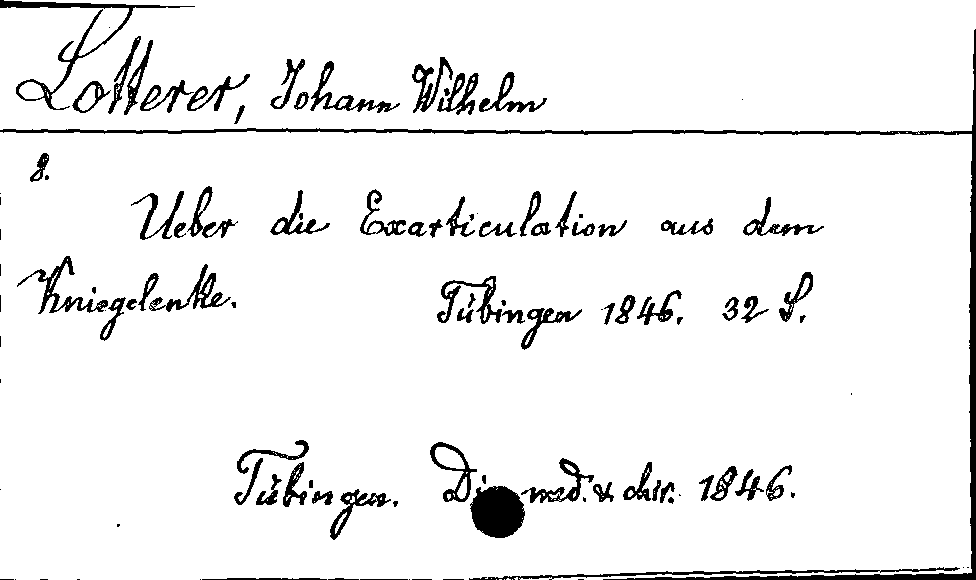 Lotterer, Johann Wilhelm
8.
Ueber die Exarticulation aus dem
Kniegelenke. Tübingen 1846. 32 S.
Tübingen. med. & chir. 1846.